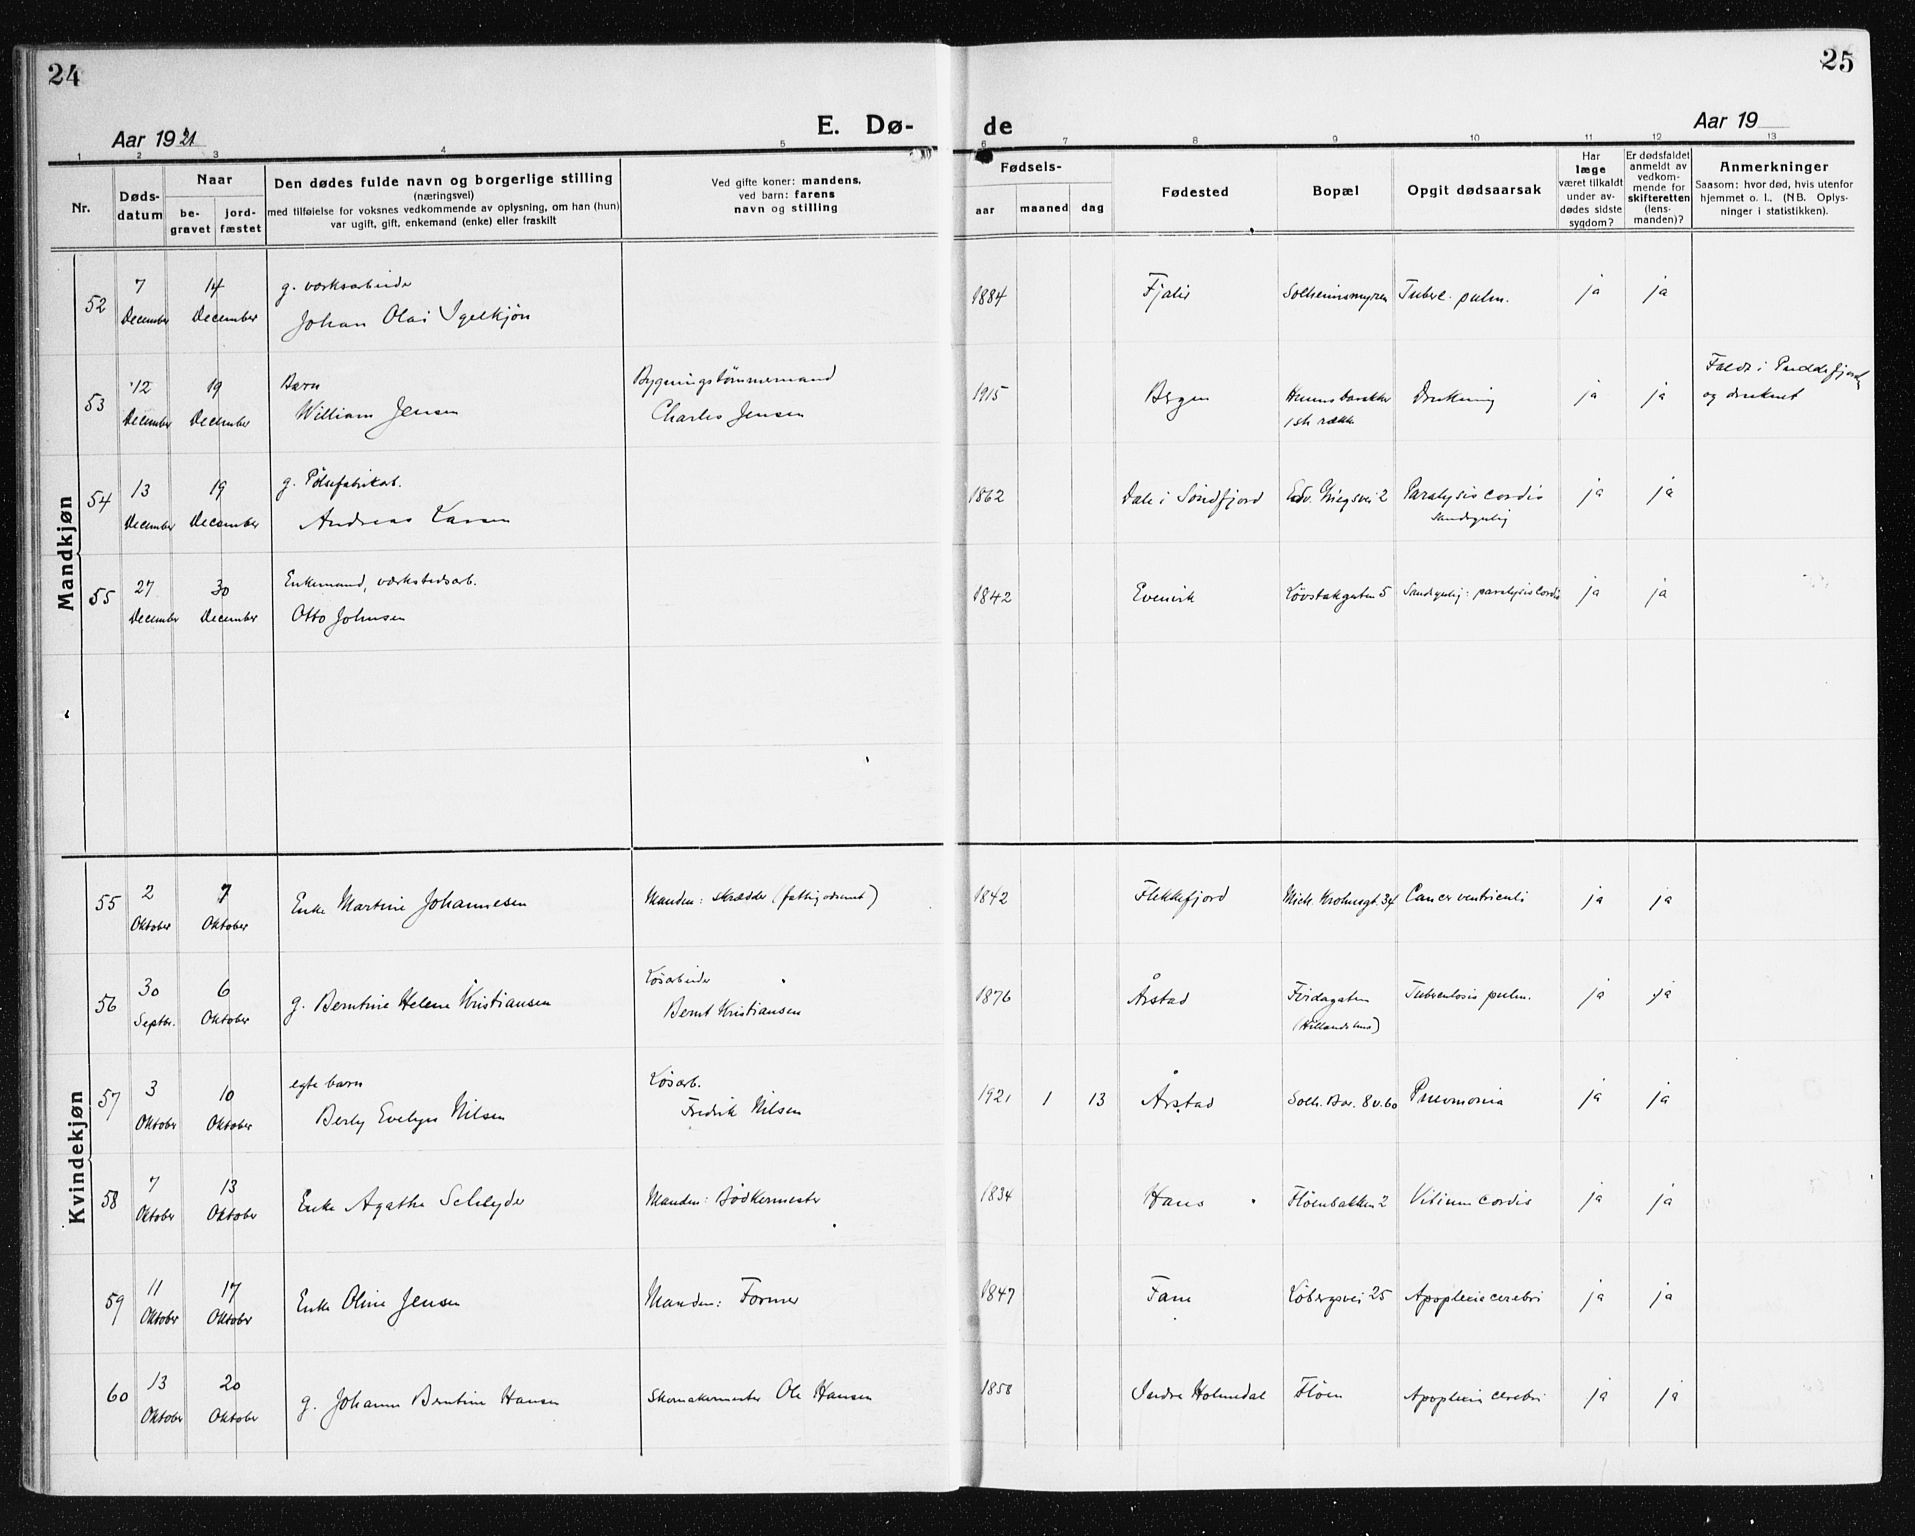 24
25
Aar 1921
E. Dø-
de
Aar 19
1 2 3 4 5 6 7 8 9 10 11 12 13
Nr.
Døds-
datum
Naar
be-
gravet
jord-
fæstet
Den dødes fulde navn og borgerlige stilling
(næringsvei)
med tilføielse for voksnes vedkommende av oplysning, om han (hun)
var ugift, gift, enkemand (enke) eller fraskilt
Ved gifte koner: mandens,
ved barn: farens
navn og stilling
Fødsels-
aar maaned dag
Fødested
Bopæl
Opgit dødsaarsak
Har
læge
været tilkaldt
under av-
dødes sidste
sygdom?
Er dødsfaldet
anmeldt av
vedkom-
mende for
skifteretten
(lens-
manden)?
Anmerkninger
Saasom: hvor død, hvis utenfor
hjemmet o. l., (NB. Oplys-
ninger i statistikken).
Mandkjøn
52 7 14 g. verksarbeider
December December Johan Olai Igelkjøn
1884 Fjaler Solheimsmyren Tuberc. pulm. ja ja
53 12 19 Barn Bygningstømmermand
December December William Jensen Charles Jensen
1915 Bergen Drukning ja ja
1ste række
Faldt i Puddefjorden
og druknet
54 13 19 g. Pølsefabrikarb.
December December Andreas Larsen
1862 Dale i Søndfjord Edv. Griegsvei 2 Paralysis cordis ja ja
Sandsynlig
55 27 30 Enkemand, værkstedsarb.
December December Otto Johnsen
1842 Evenvik Løvstakgaten 5 Sandsynlig: paralysis cordis ja ja
Kvindekjøn
55 2 7 Enke Martine Johannesen Manden: Skrædder
Oktober Oktober
1842 Flekkefjord Mich. Krohnsgt. 34 Cancer ventriculi ja ja
56 30 6 Løsarbeider
Septbr. Oktober g. Berntine Helene Kristiansen Bernt Kristiansen
1876 Årstad Fjordagaten Tuberculosis pulm. ja ja
57 3 10 egte barn Løsarb.
Oktober Oktober Berly Evelyn Nilsen Fredrik Nilsen
1921 1 13 Årstad Solh. Bar. 8 v. 60 Pneumonia ja ja
58 7 13 Enke Agathe Schleyder Manden: Bødkermester
Oktober Oktober
1834 Haus Fløenbakken 2 Vitium cordis ja ja
59 11 17 Enke Oline Jensen Manden: Former
Oktober Oktober
1847 Fane Løbergsvei 25 Apoplexia cerebri ja ja
60 13 20 g. Johanne Berntine Hansen Skomakermester Ole Hansen
Oktober Oktober
1858 Indre Holmedal Fløen Apoplexia cerebri ja ja